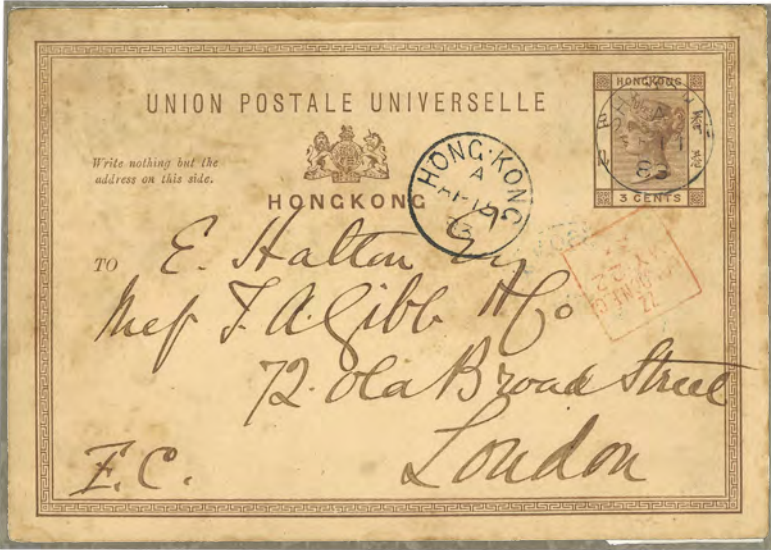 UNION POSTALE UNIVERSELLE
Write nothing but the
address on this side.
HONGKONG
HONGKONG
3 CENTS
HONG-KONG
A
TO E. Halton Esq
Mess T. A. Gibb & Co
72. Old Broad Street
London
E.C.